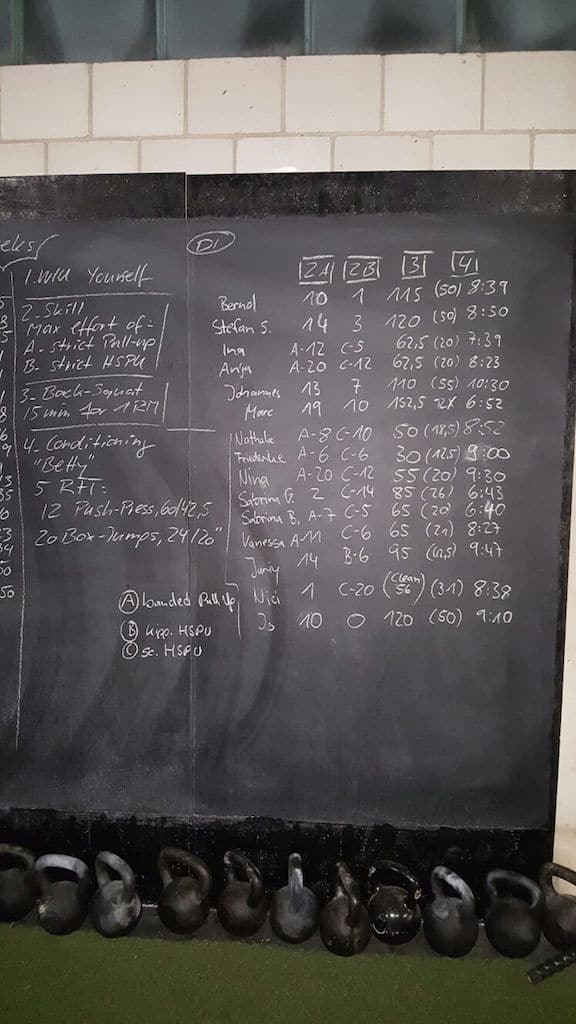 1. WU Yourself
2. Skill
Max effort of:
A. strict Pull-up
B. strict HSPU
3. Back-Squat
15 min for 1 RM
4. Conditioning
"Betty"
5 RFT:
12 Push-Press, 60/42,5
20 Box-Jumps, 24/20"
DI
2A 2B 3 4
Bernd 10 1 115 (50) 8:39
Stefan S. 14 3 120 (50) 8:50
Ina A-12 C-5 62,5 (20) 7:39
Anja A-20 C-12 62,5 (20) 8:23
Johannes 13 7 110 (55) 10:30
Marc 19 10 152,5 RX 6:52
Nathalie A-8 C-10 50 (18,5) 8:52
Friederike A-6 C-6 30 (12,5) 9:00
Nina A-20 C-12 55 (20) 9:30
Sabrina G. 2 C-14 85 (26) 6:43
Sabrina B. A-7 C-5 65 (20) 6:40
Vanessa A-11 C-6 65 (21) 8:27
14 B-6 95 (42,5) 9:47
Nici 1 C-20 (Clean 56) (31) 8:38
Jo 10 0 120 (50) 9:10
A banded Pull Up
B kipp. HSPU
C sc. HSPU